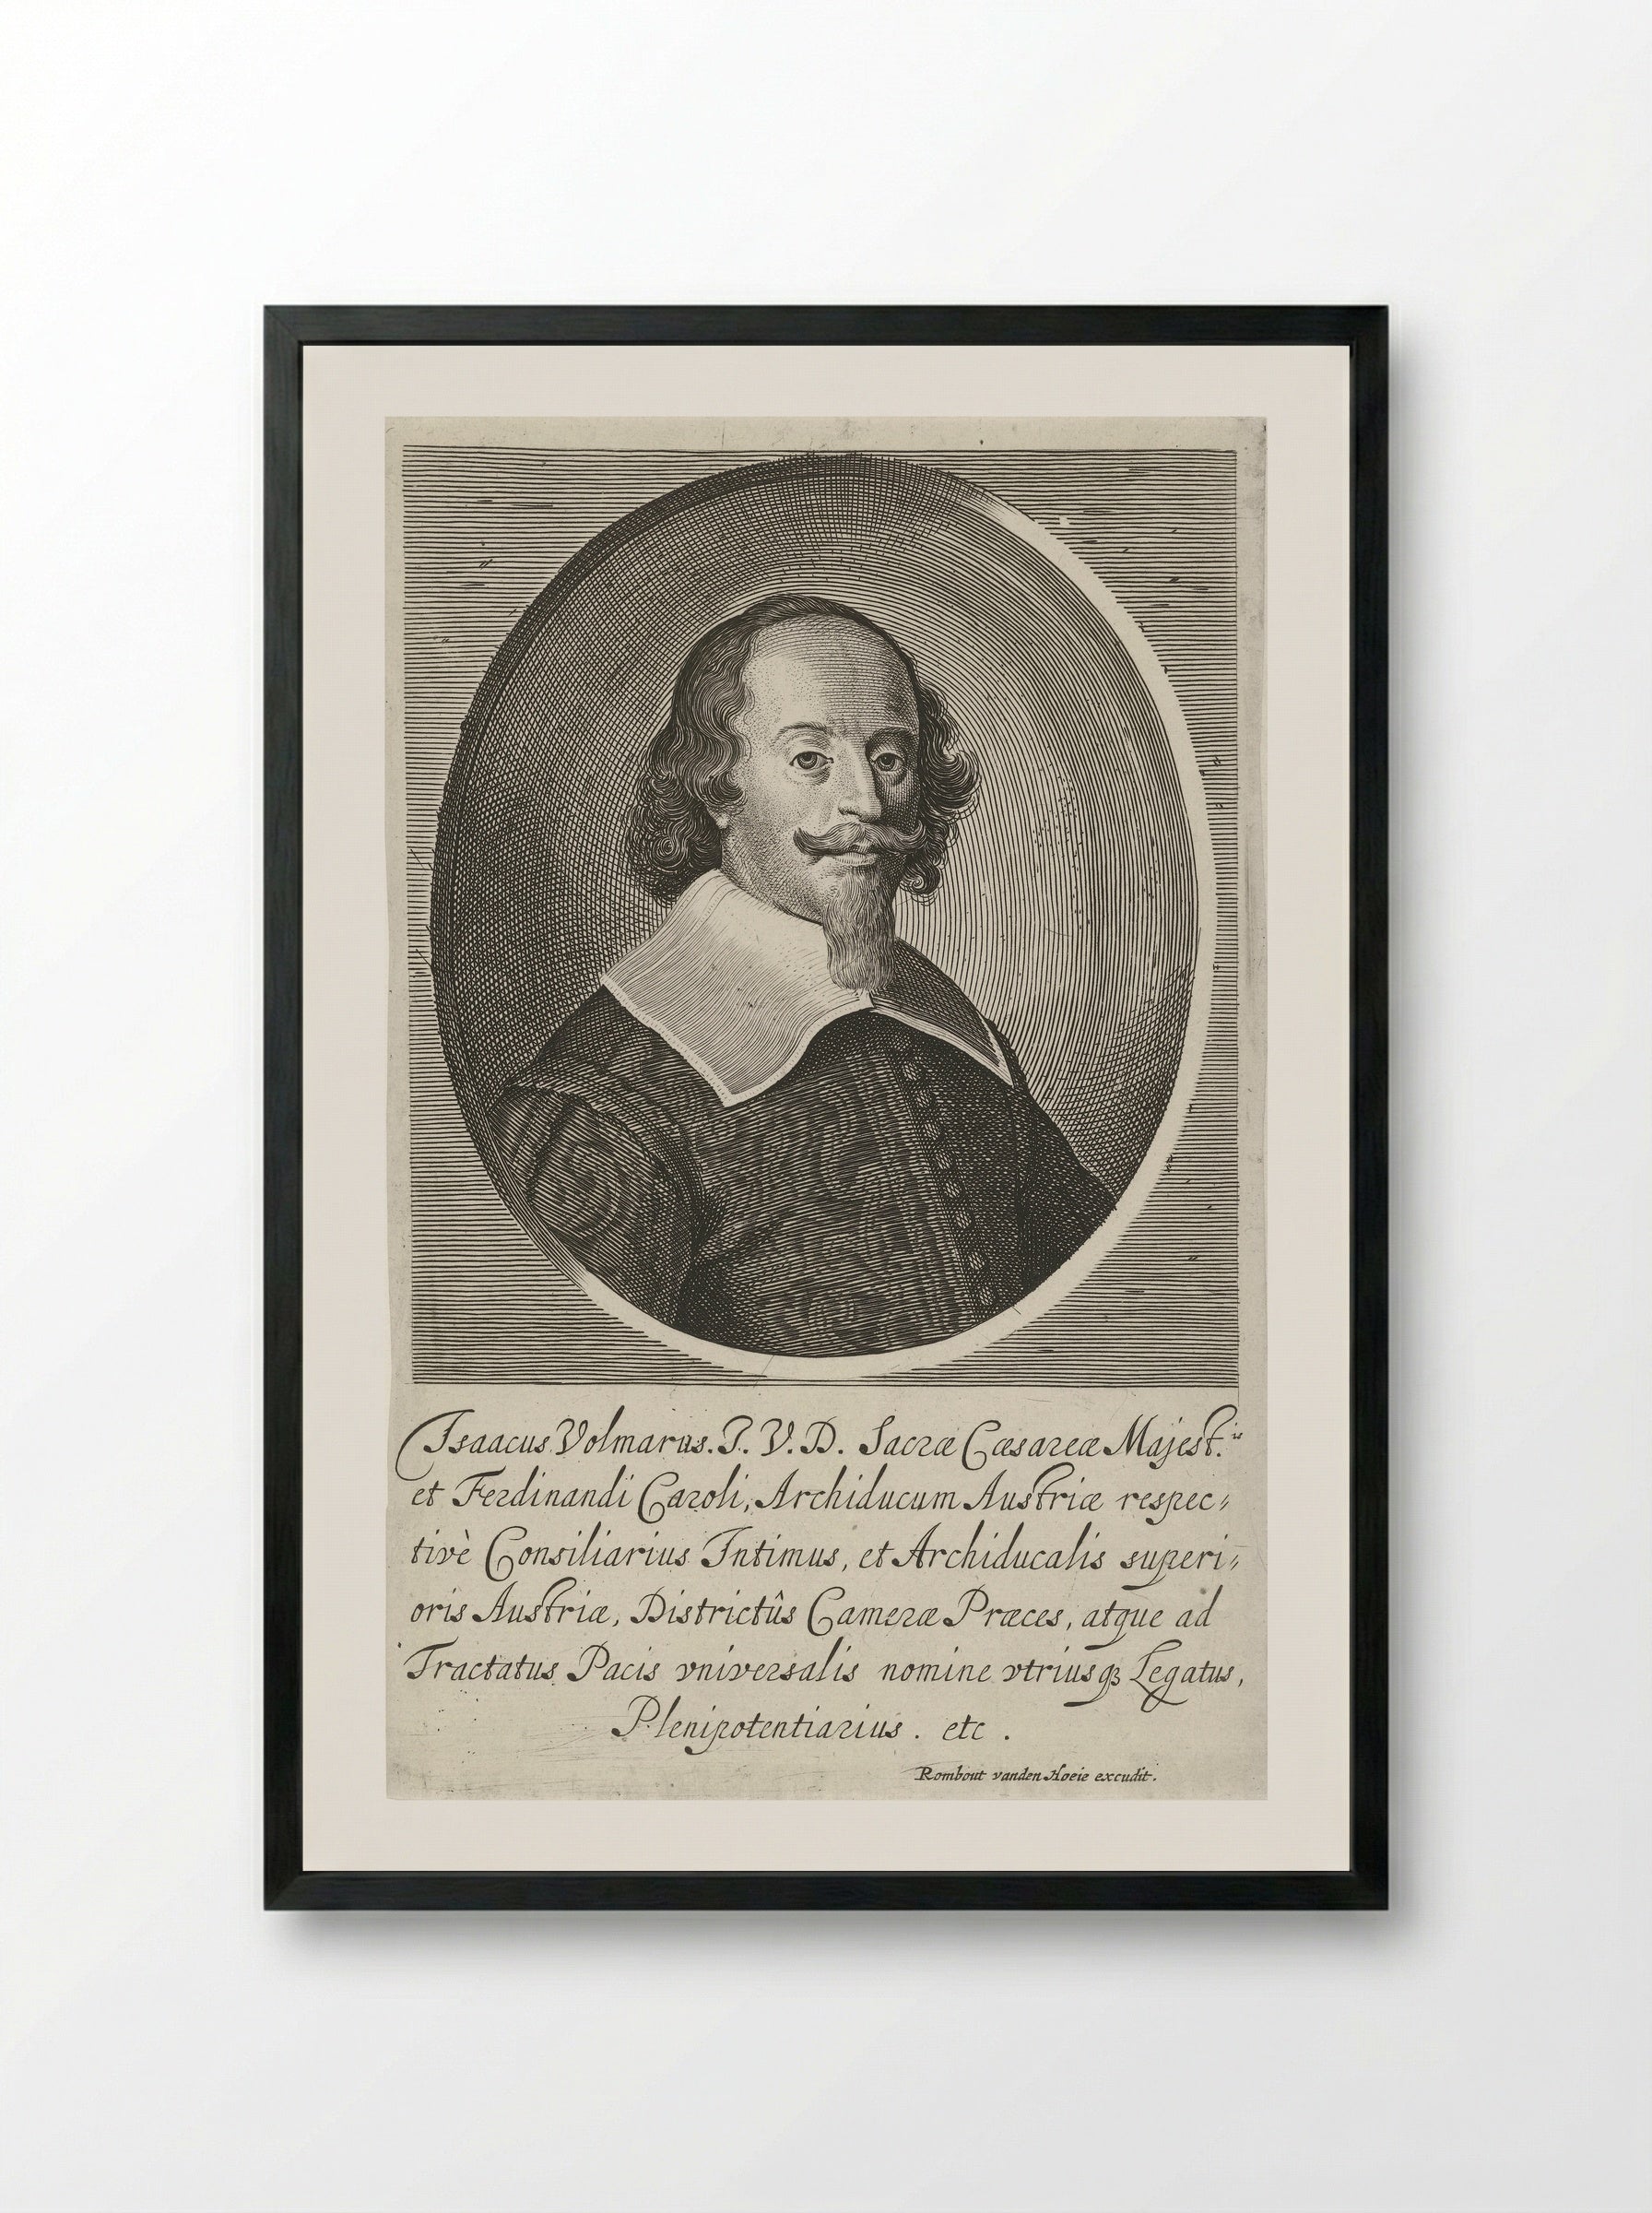 Isaacus Volmarus. J. V. D. Sacræ Cæsareæ Majest.is
et Ferdinandi Caroli, Archiducum Austriæ respec-
tivè Consiliarius Intimus, et Archiducalis superi-
oris Austriæ, Districtûs Cameræ Præces, atque ad
Tractatus Pacis vniversalis nomine vtriusqꝫ Legatus,
Plenipotentiarius. etc.
Rombout vanden Hoeie excudit.